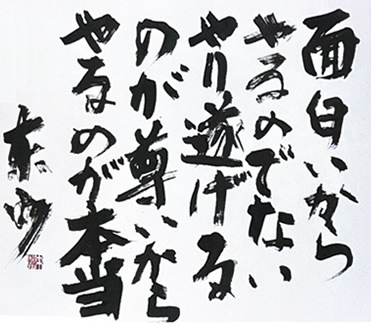 面白いから
やるのでない
やり遂げる
のが尊いから
やるのが本当